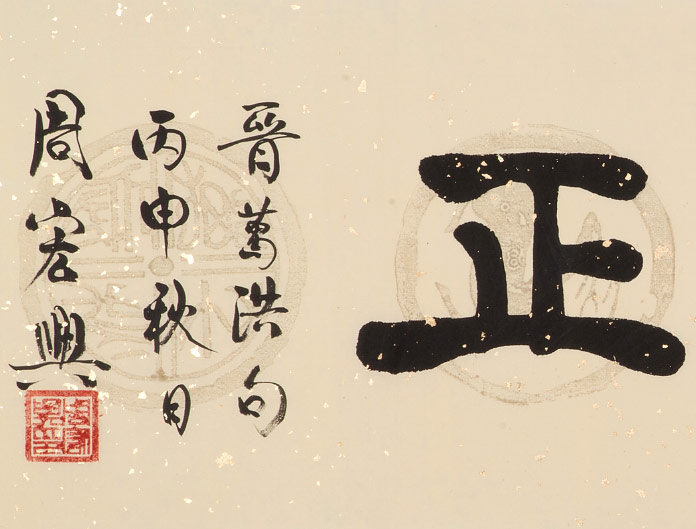 正
晉葛洪句
丙申秋月
周宏興